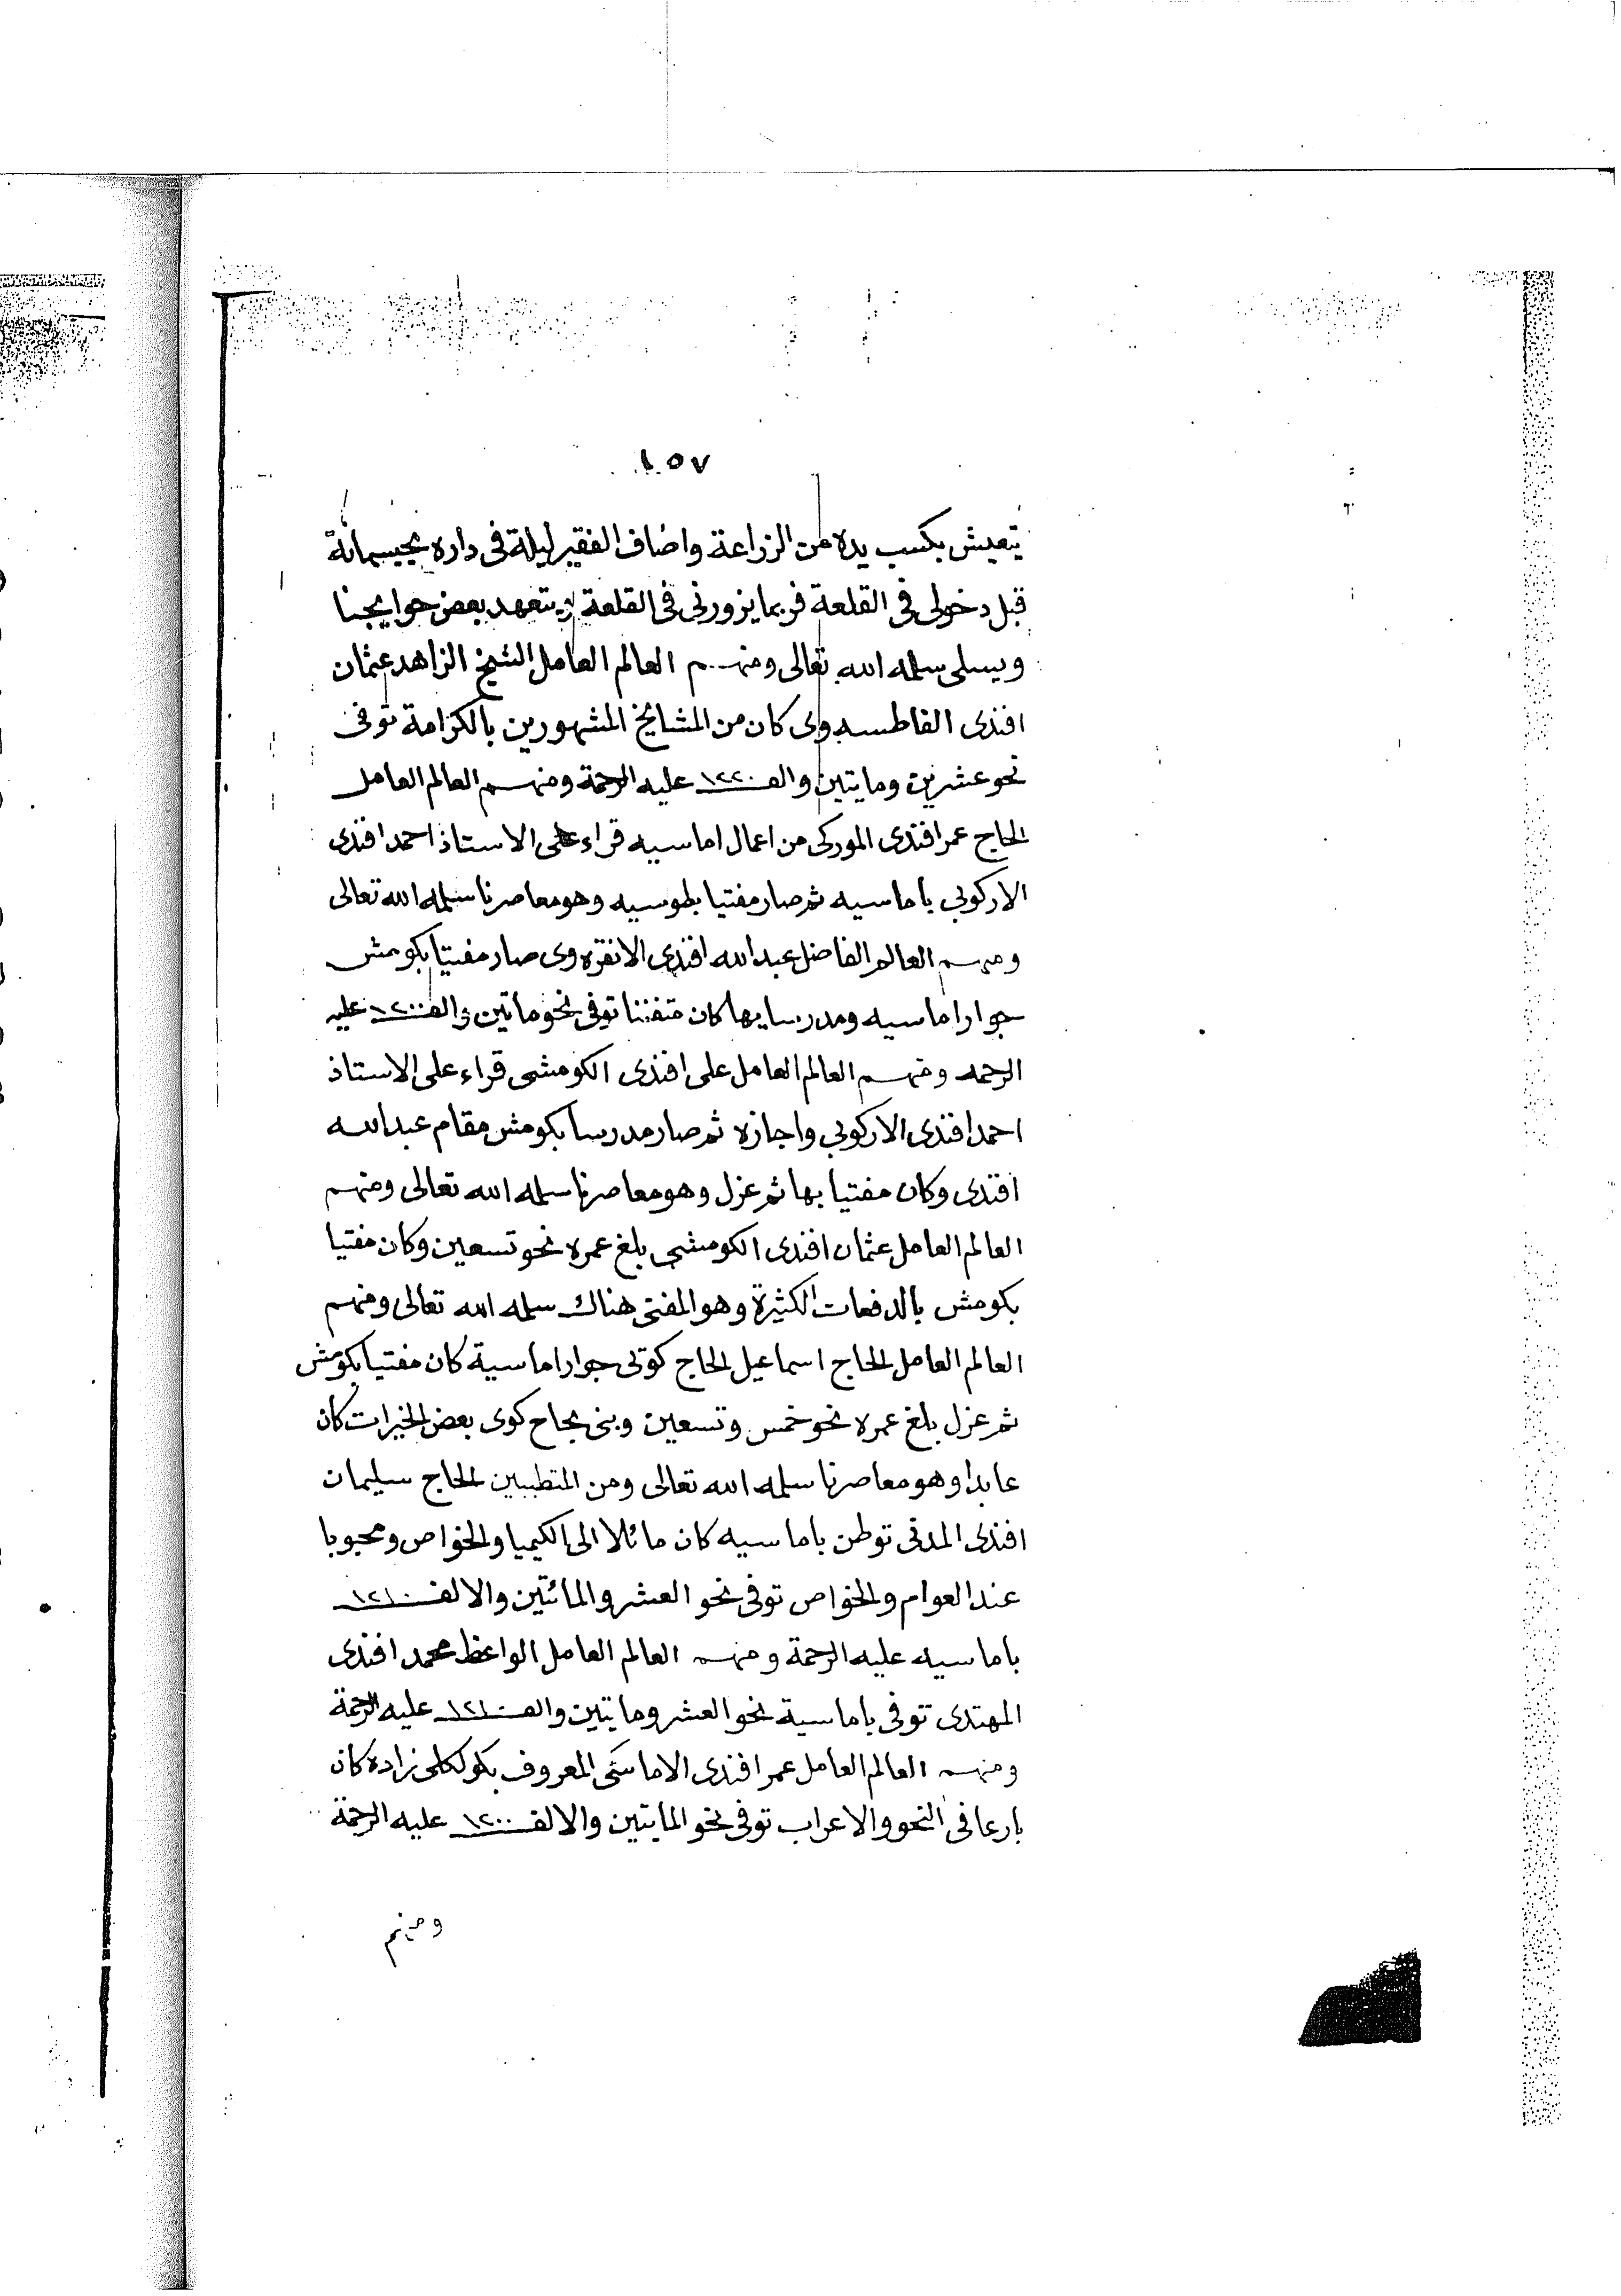 ١٥٧
يتعيش بكسب يده من الزراعة واضاف الفقير ليلة فى داره
قبل دخولى فى القلعة فربما يزورنى فى القلعة يتعهد بعض حوايجنا
ويسلى سلمه الله تعالى ومنهم العالم العامل الشيخ الزاهد عثمان
افندى الفاطسه وى كان من المشايخ المشهورين بالكرامة توفى
نحو عشرين ومايتين والف ١٢٢٠ عليه الرحمة ومنهم العالم العامل
الحاج عمر افندى الموركى من اعمال اماسيه قراء على الاستاذ احمد افندى
الاركوبى باماسيه ثم صار مفتيا بطوسيه وهو معاصرنا سلمه الله تعالى
ومنهم العالم الفاضل عبد الله افندى الانقره وى صار مفتيا بكومش
جوار اماسيه ومدرسا بها كان متفننا توفى نحو مأتين والف ١٢٠٠ عليه
الرحمه ومنهم العالم العامل على افندى الكومشى قراء على الاستاذ
احمد افندى الاركوبى واجازه ثم صار مدرسا بكومش مقام عبد الله
افندى وكان مفتيا بها ثم عزل وهو معاصرنا سلمه الله تعالى ومنهم
العالم العامل عثمان افندى الكومشى بلغ عمره نحو تسعين وكان مفتيا
بكومش بالدفعات الكثيرة وهو المفتى هناك سلمه الله تعالى ومنهم
العالم العامل الحاج اسماعيل الحاج كويى جوار اماسية كان مفتيا بكومش
ثم عزل بلغ عمره نحو خمس وتسعين وبنى بحاج كوى بعض الخيرات كان
عابدا وهو معاصرنا سلمه الله تعالى ومن المتطببين الحاج سليمان
افندى المدنى توطن باماسيه كان مائلا الى الكيميا والخواص ومحبوبا
عند العوام والخواص توفى نحو العشر والمائتين والالف ١٢١٠
باماسيه عليه الرحمة ومنهم العالم العامل الواعظ محمد افندى
المهتدى توفى باماسية نحو العشر ومايتين والف ١٢١٠ عليه الرحمة
ومنهم العالم العامل عمر افندى الاماسى المعروف بكولكلى زاده كان
بارعا فى النحو والاعراب توفى نحو المايتين والالف ١٢٠٠ عليه الرحمة
ومنهم